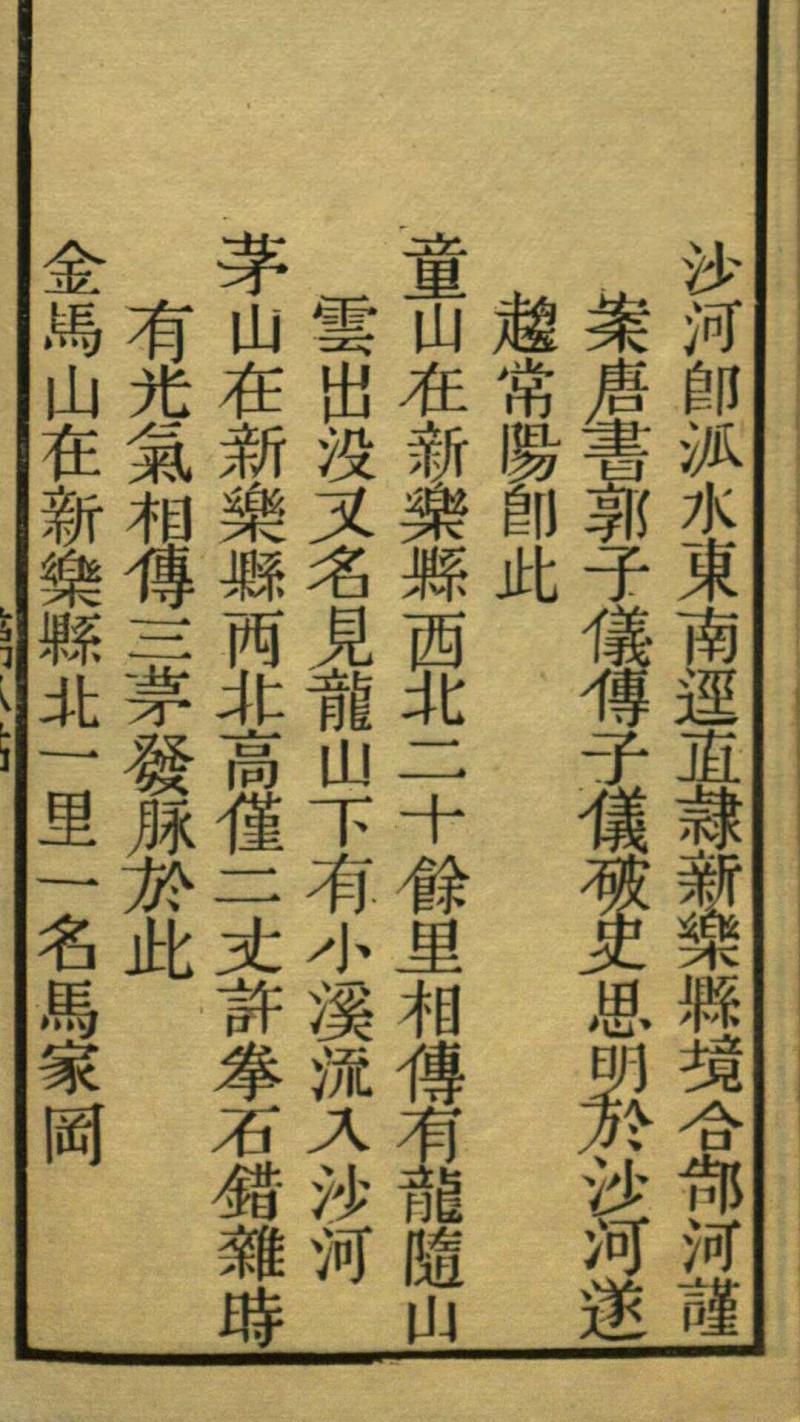 沙河卽泒水東南逕直隸新樂縣境合郜河謹
案唐書郭子儀傳子儀破史思明於沙河遂
趨常陽卽此
童山在新樂縣西北二十餘里相傳有龍隨山
雲出没又名見龍山下有小溪流入沙河
茅山在新樂縣西北高僅二丈許拳石錯雜時
有光氣相傳三茅發脉於此
金馬山在新樂縣北一里一名馬家岡